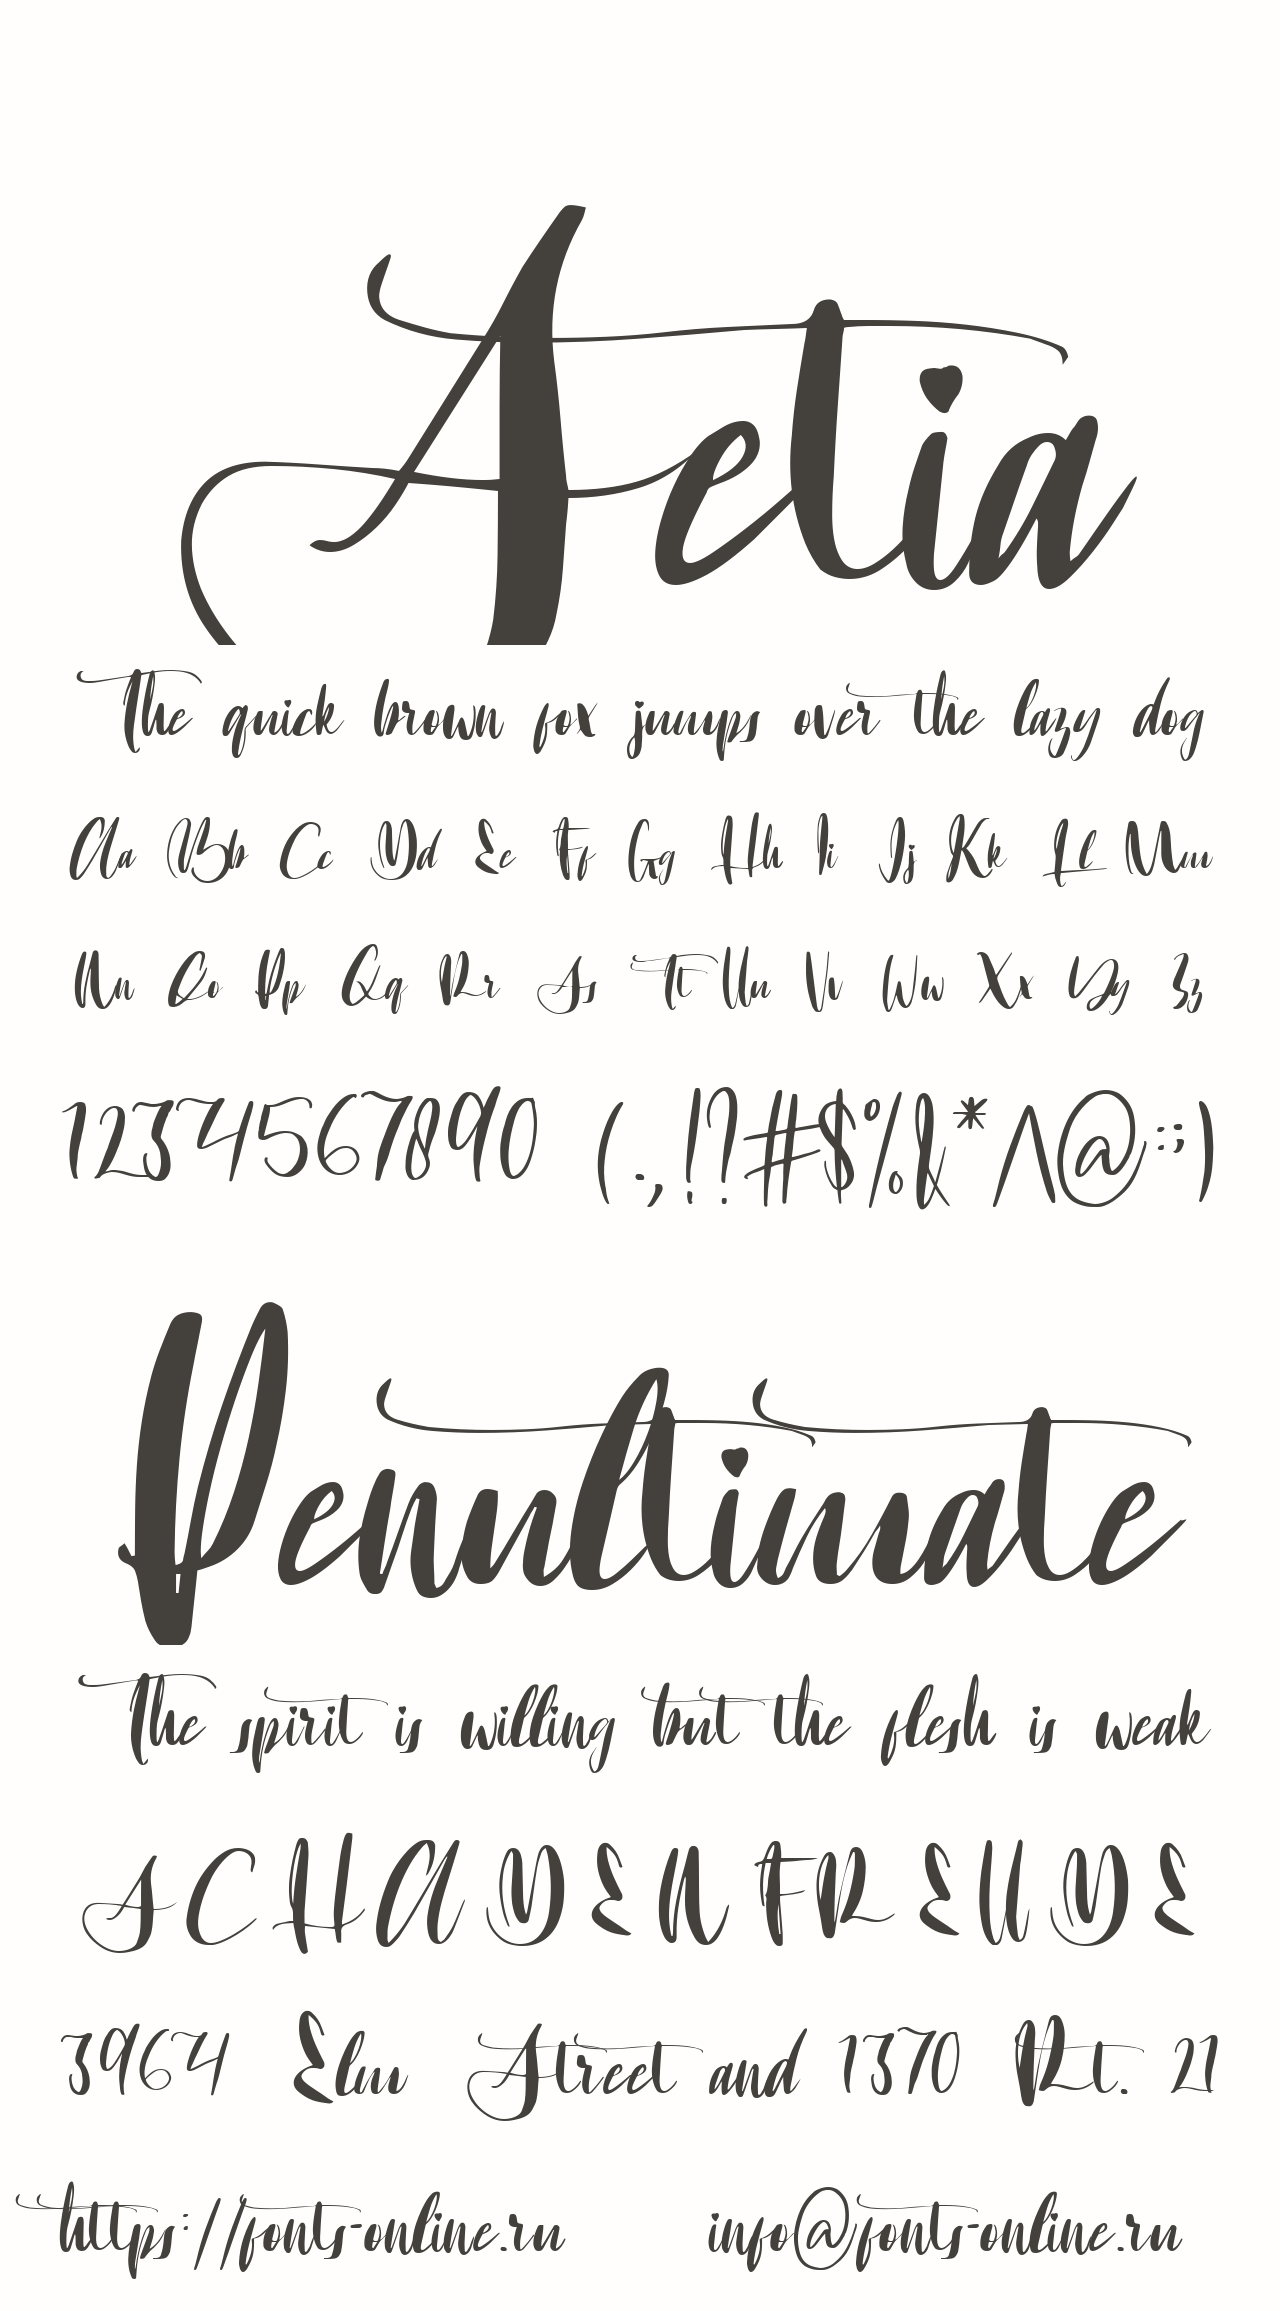 Aetia
The quick brown fox jumps over the lazy dog
Aa Bb Cc Dd Ee Ff Gg Hh Ii Jj Kk Ll Mm
Nn Oo Pp Qq Rr Ss Tt Uu Vv Ww Xx Yy Zz
1234567890 (.,!?#$%&*^@:;)
Penultimate
The spirit is willing but the flesh is weak
SCHADENFREUDE
3964 Elm Street and 1370 Rt. 21
https://fonts-online.ru info@fonts-online.ru